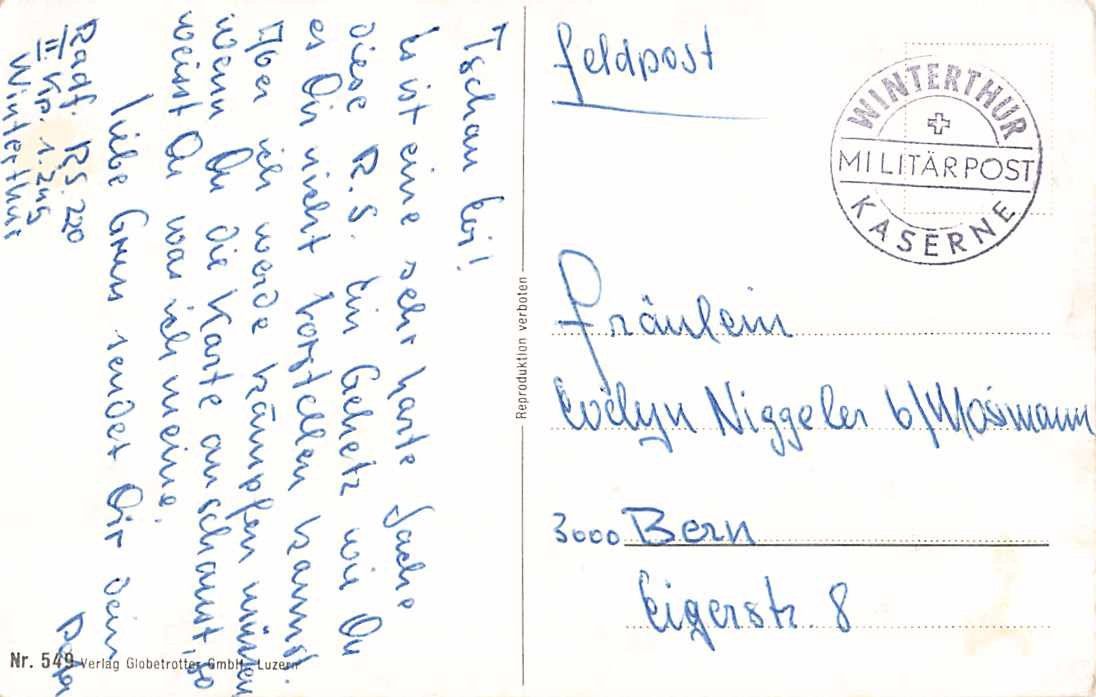 Tschau Evi!
Es ist eine sehr harte Sache
diese R.S. Ein Gehetz wie Du
es Dir nicht vorstellen kannst
Aber ich werde kämpfen müssen
wenn Du die Karte anschaust, so
weisst Du was ich meine.
Liebe Gruss sendet Dir dein
Radf. R.S. 220
III. Kp. 1. Zug
Winterthur
Nr. 549 Verlag Globetrotter GmbH., Luzern
Reproduktion verboten
Feldpost
WINTERTHUR
MILITÄRPOST
KASERNE
Fräulein
Evelyn Niggeler b/Mosimann
3000 Bern
Eigerstr. 8